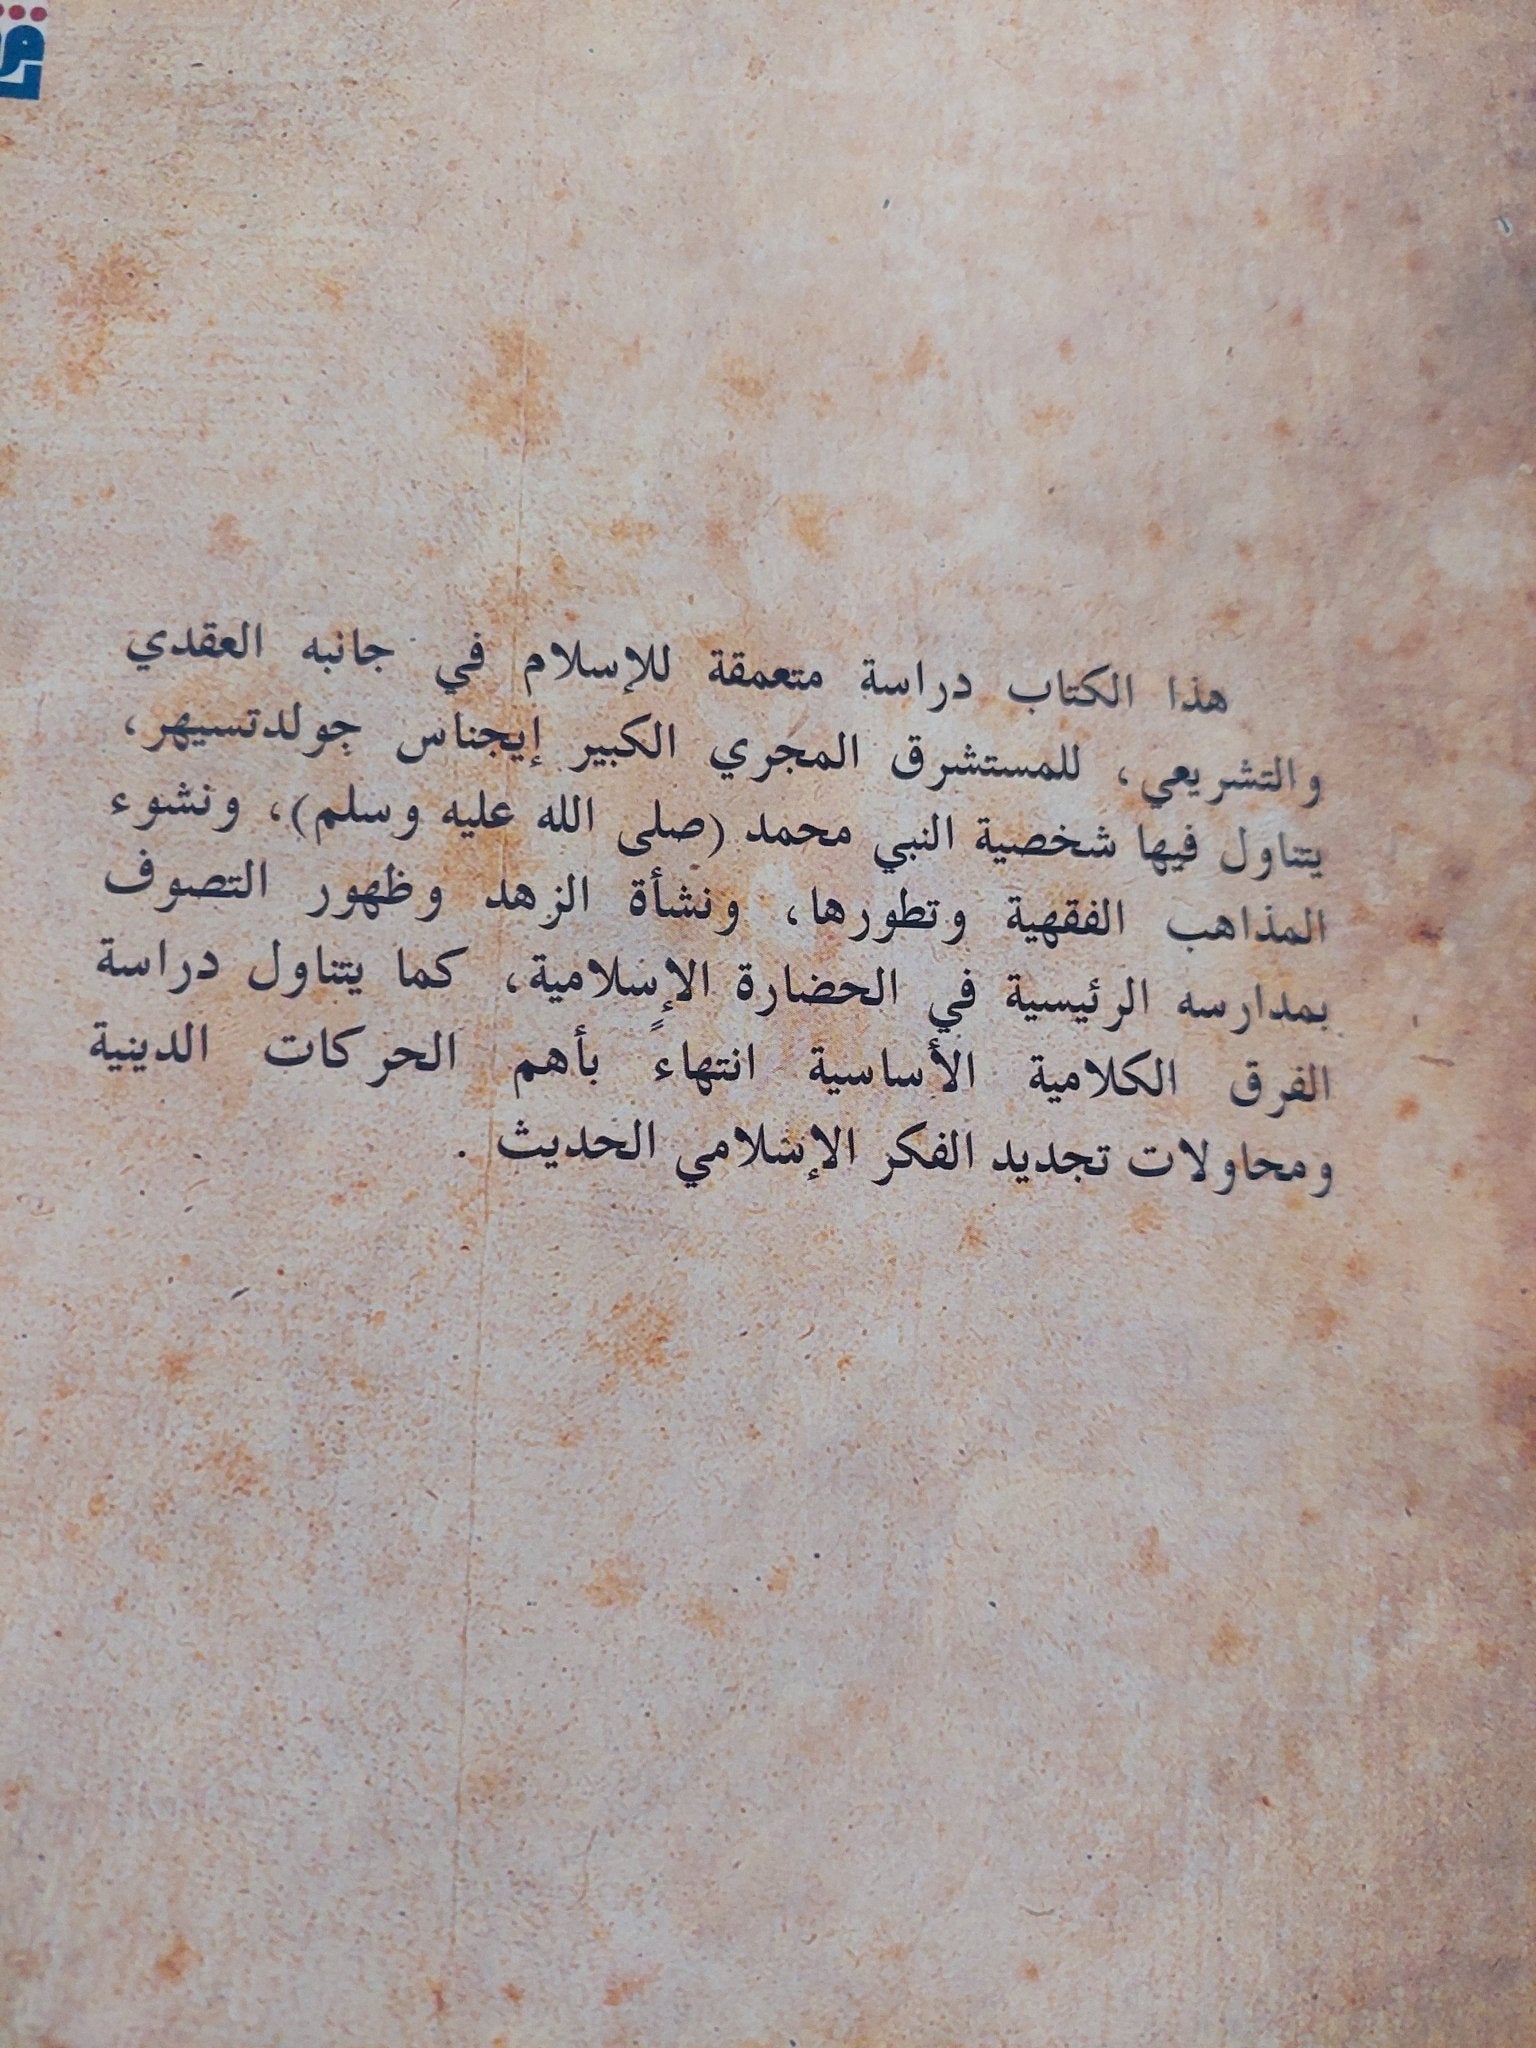 هذا الكتاب دراسة متعمقة للإسلام في جانبه العقدي
والتشريعي، للمستشرق المجري الكبير إيجناس جولدتسيهر،
يتناول فيها شخصية النبي محمد (صلى الله عليه وسلم)، ونشوء
المذاهب الفقهية وتطورها، ونشأة الزهد وظهور التصوف
بمدارسه الرئيسية في الحضارة الإسلامية، كما يتناول دراسة
الفرق الكلامية الأساسية انتهاءً بأهم الحركات الدينية
ومحاولات تجديد الفكر الإسلامي الحديث .